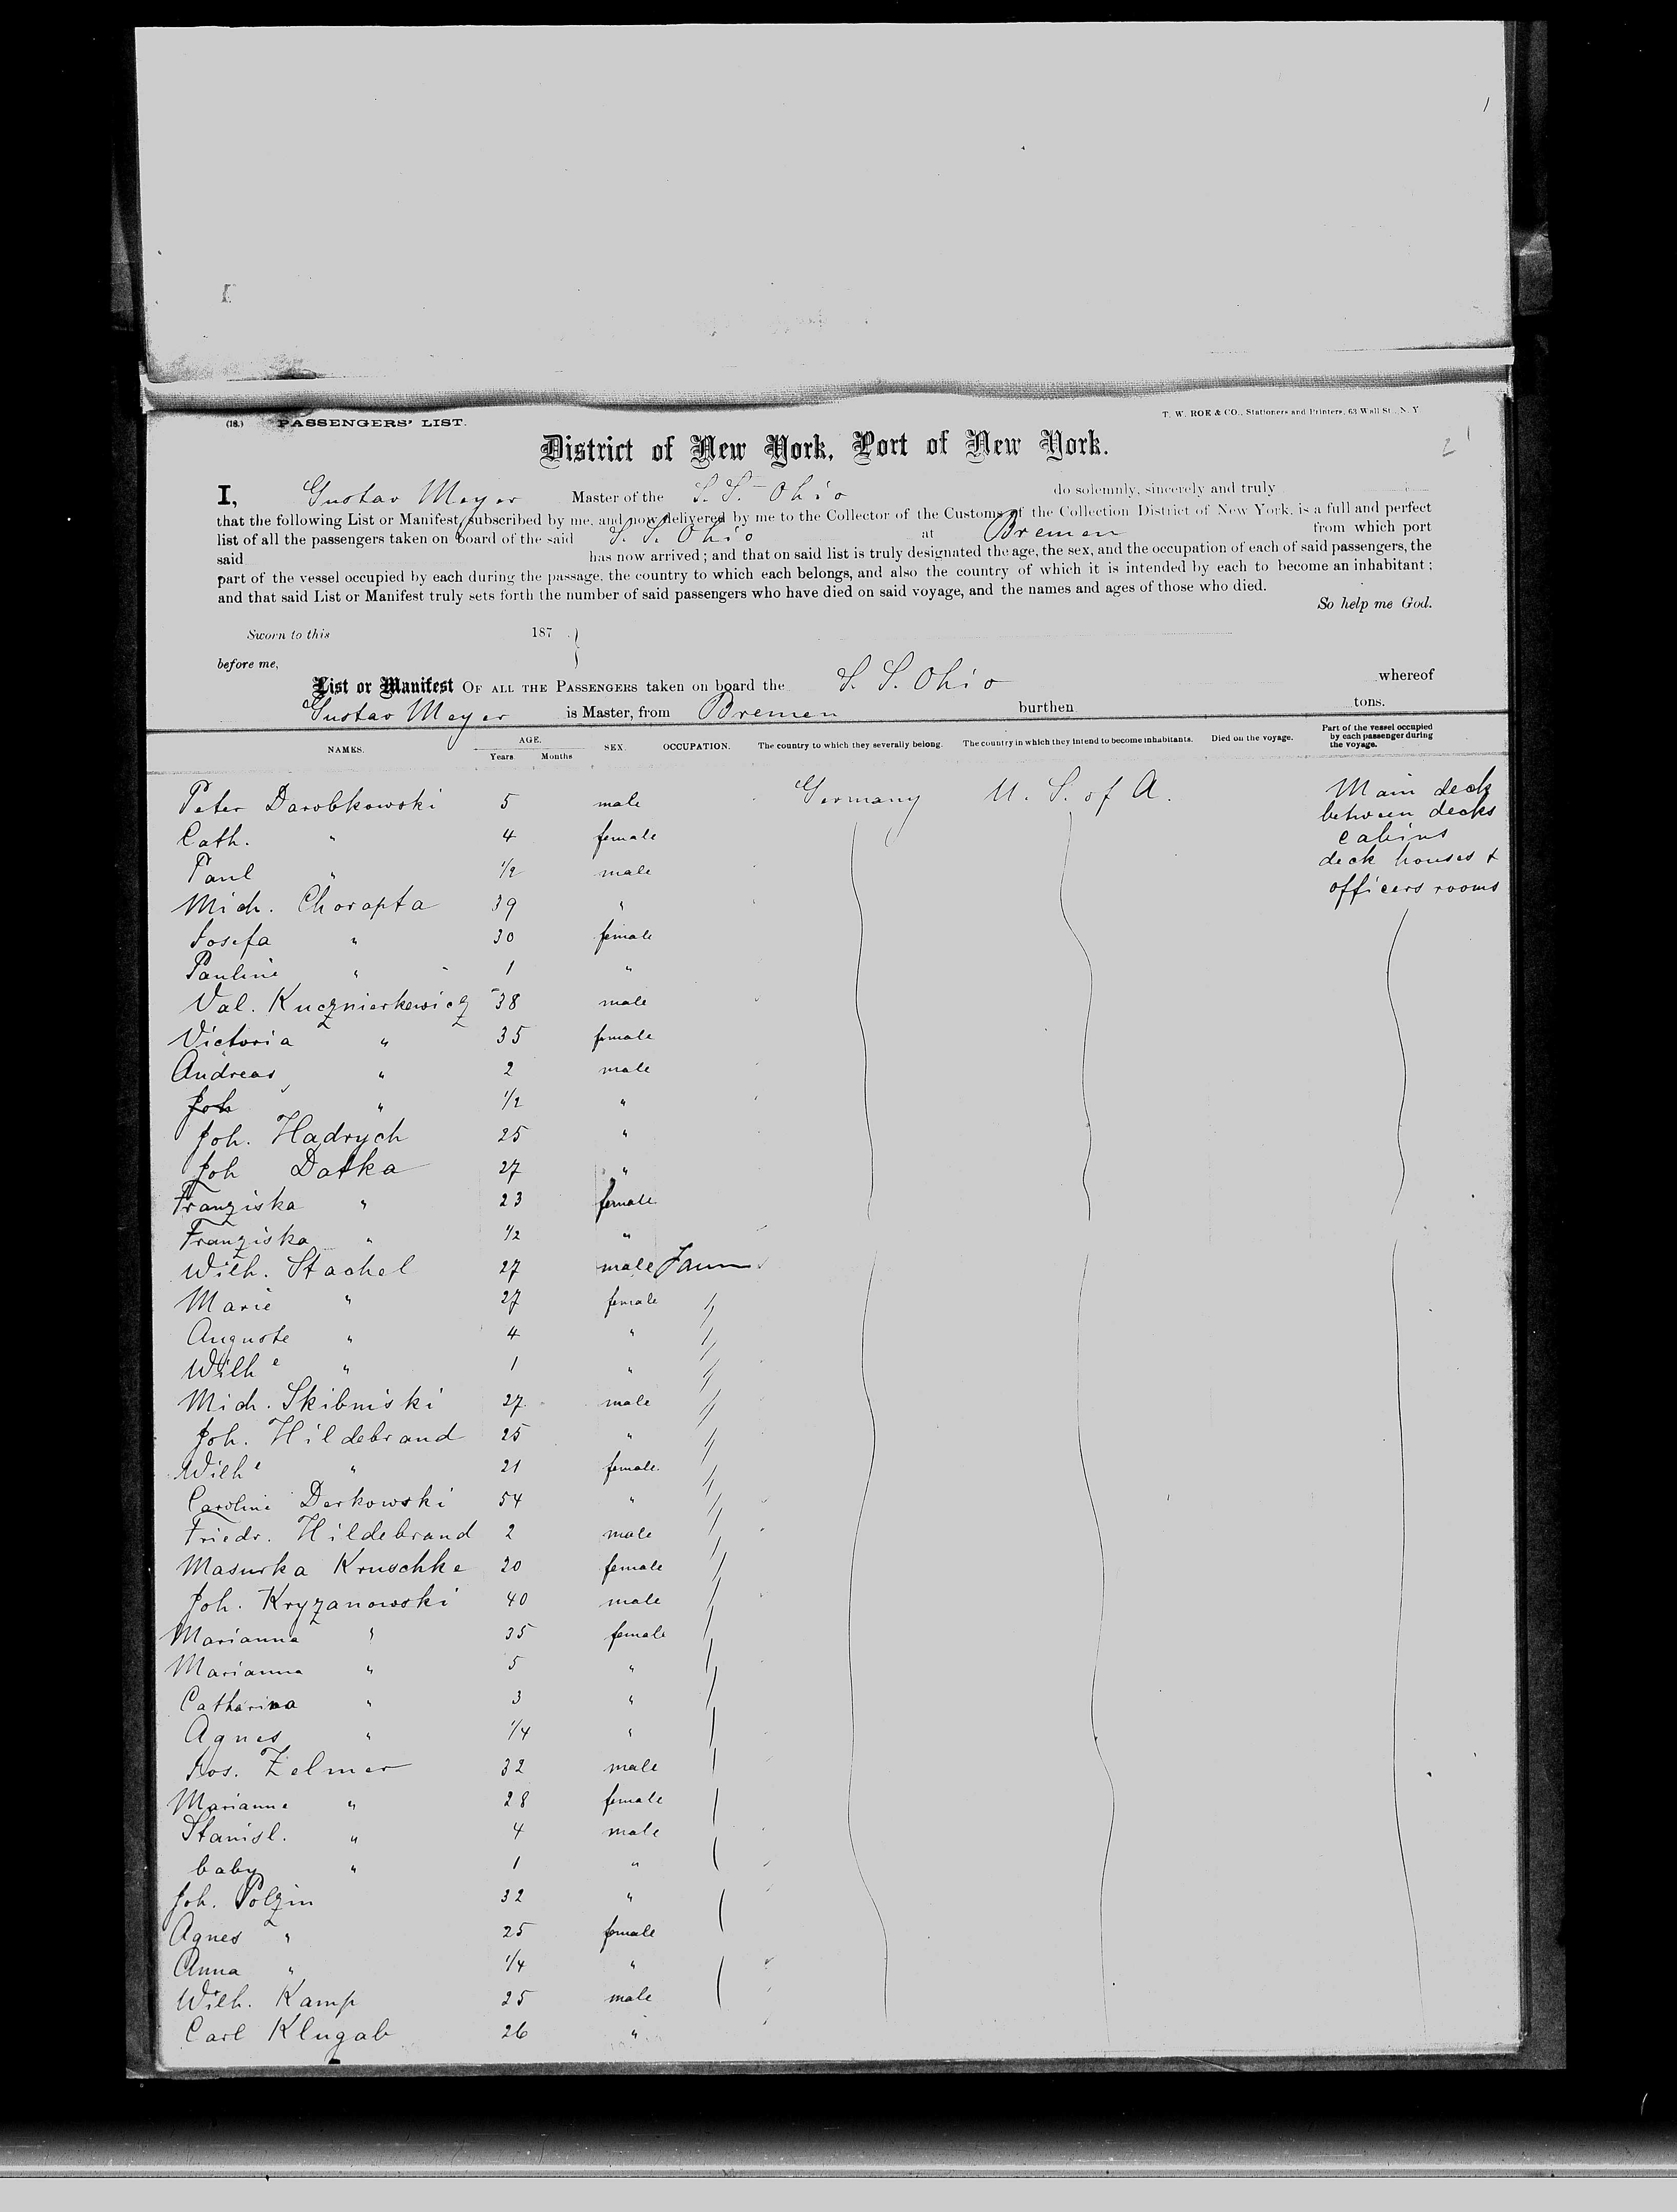 (18.) PASSENGERS' LIST.
T. W. ROE & CO., Stationers and Printers, 63 Wall St., N. Y
District of New York, Port of New York.
2 1
I, Gustav Meyer Master of the S. S. Ohio do solemnly, sincerely and truly
that the following List or Manifest, subscribed by me, and now delivered by me to the Collector of the Customs of the Collection District of New York, is a full and perfect
list of all the passengers taken on board of the said S. S. Ohio at Bremen from which port
said has now arrived; and that on said list is truly designated the age, the sex, and the occupation of each of said passengers, the
part of the vessel occupied by each during the passage, the country to which each belongs, and also the country of which it is intended by each to become an inhabitant;
and that said List or Manifest truly sets forth the number of said passengers who have died on said voyage, and the names and ages of those who died.
So help me God.
Sworn to this 187 }
before me,
List or Manifest OF ALL THE PASSENGERS taken on board the S. S. Ohio whereof
Gustav Meyer is Master, from Bremen burthen tons.
NAMES. AGE. Years Months SEX. OCCUPATION. The country to which they severally belong. The country in which they intend to become inhabitants. Died on the voyage. Part of the vessel occupied by each passenger during the voyage.
Peter Darobkowski 5 male Germany U. S. of A. Main deck
between decks
Cath. " 4 female cabins
Paul " 1/2 male deck houses &
Mich. Chorapta 39 " officers rooms
Josefa " 30 female
Pauline " 1 "
Val. Kucznierkewicz 38 male
Victoria " 35 female
Andreas " 2 male
Joh " 1/2 "
Joh. Hadrych 25 "
Joh Datka 27 "
Franziska " 23 female
Franziska " 1/2 "
Wilh. Stachel 27 male
Marie " 27 female "
Auguste " 4 " "
Wilhe " 1 " "
Mich. Skibniski 27 male "
Joh. Hildebrand 25 " "
Wilhe " 21 female "
Caroline Derkowski 54 " "
Friedr. Hildebrand 2 male "
Masurka Kruschke 20 female "
Joh. Kryzanowski 40 male "
Marianna " 35 female "
Marianna " 5 "
Catharina " 3 "
Agnes " 1/4 "
Jos. Zelmer 32 male
Marianne " 28 female
Stanisl. " 4 male
baby " 1 "
Joh. Polzin 32 "
Agnes " 25 female
Anna " 1/4 "
Wilh. Kamp 25 male
Carl Klugab 26 "